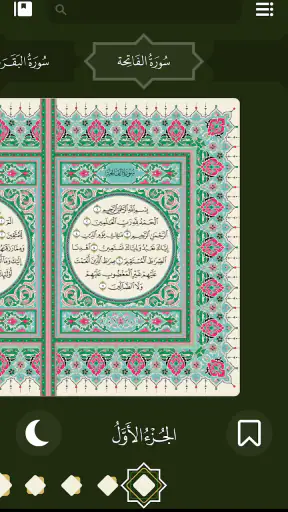 سُورَةُ الفَاتِحَة
سُورَةُ البَقَـرَ
سُورَةُ الفَاتِحَةِ
بِسْمِ ٱللَّهِ ٱلرَّحْمَٰنِ ٱلرَّحِيمِ ١
ٱلْحَمْدُ لِلَّهِ رَبِّ ٱلْعَٰلَمِينَ ٢
ٱلرَّحْمَٰنِ ٱلرَّحِيمِ ٣ مَٰلِكِ يَوْمِ ٱلدِّينِ ٤
إِيَّاكَ نَعْبُدُ وَإِيَّاكَ نَسْتَعِينُ ٥ ٱهْدِنَا
ٱلصِّرَٰطَ ٱلْمُسْتَقِيمَ ٦ صِرَٰطَ ٱلَّذِينَ أَنْعَمْتَ
عَلَيْهِمْ غَيْرِ ٱلْمَغْضُوبِ عَلَيْهِمْ
وَلَا ٱلضَّآلِّينَ ٧
الجُزْءُ الأَوَّلُ